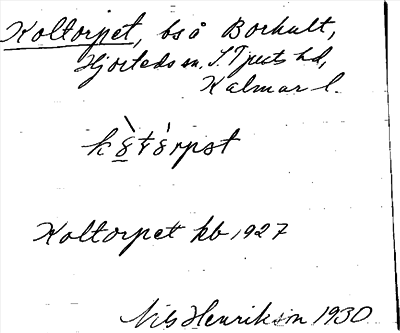 Koltorpet, bs å Borhult,
Hjorteds sn, S. Tjusts hd,
Kalmar l.
Koltorpet kb 1927
Nils Henrikson 1930